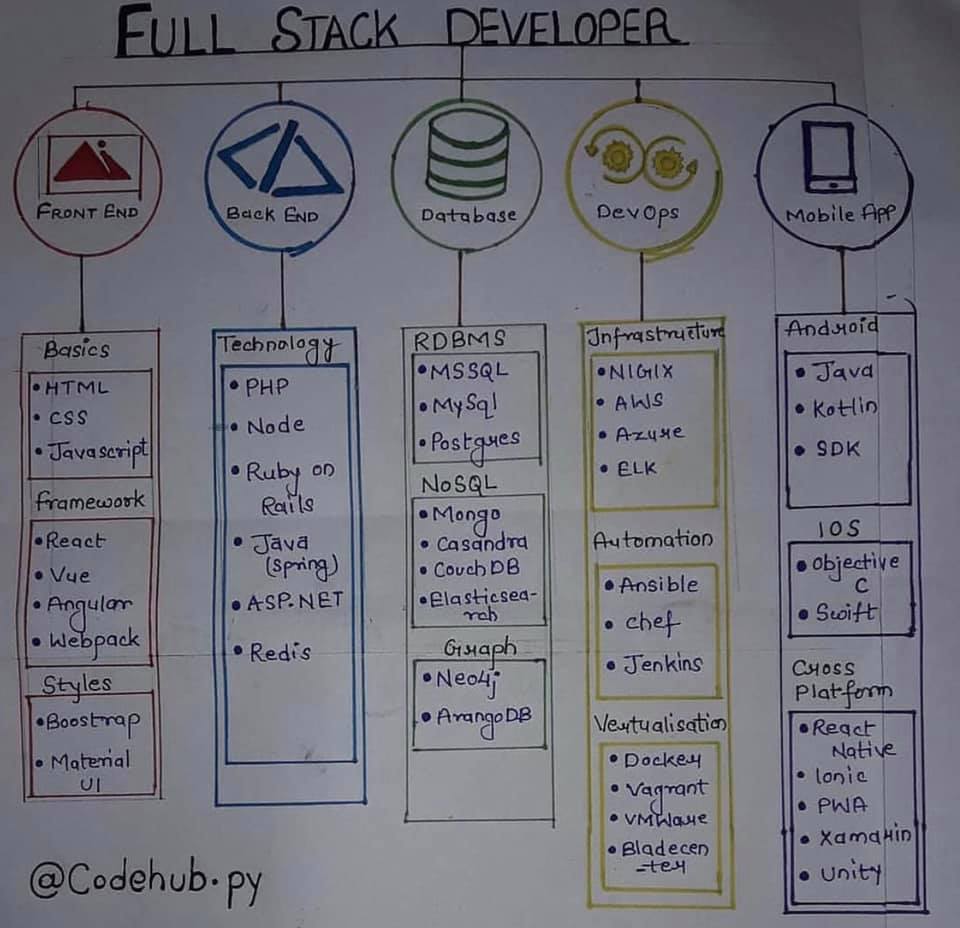 FULL STACK DEVELOPER
FRONT END
Basics
• HTML
• CSS
• Javascript
framework
• React
• Vue
• Angular
• Webpack
Styles
• Boostrap
• Material
UI
Back END
Technology
• PHP
• Node
• Ruby on
Rails
• Java
(spring)
• ASP.NET
• Redis
Database
RDBMS
• MSSQL
• MySql
• Postgres
NoSQL
• Mongo
• Casandra
• CouchDB
• Elasticsea-
rch
Graph
• Neo4j
• ArangoDB
DevOps
Infrastructure
• NIGIX
• AWS
• Azure
• ELK
Automation
• Ansible
• chef
• Jenkins
Vertualisation
• Docker
• Vagrant
• VMWare
• Bladecen
-ter
Mobile App
Android
• Java
• Kotlin
• SDK
IOS
• Objective
C
• Swift
Cross
Platform
• React
Native
• Ionic
• PWA
• Xamarin
• Unity
@Codehub.py